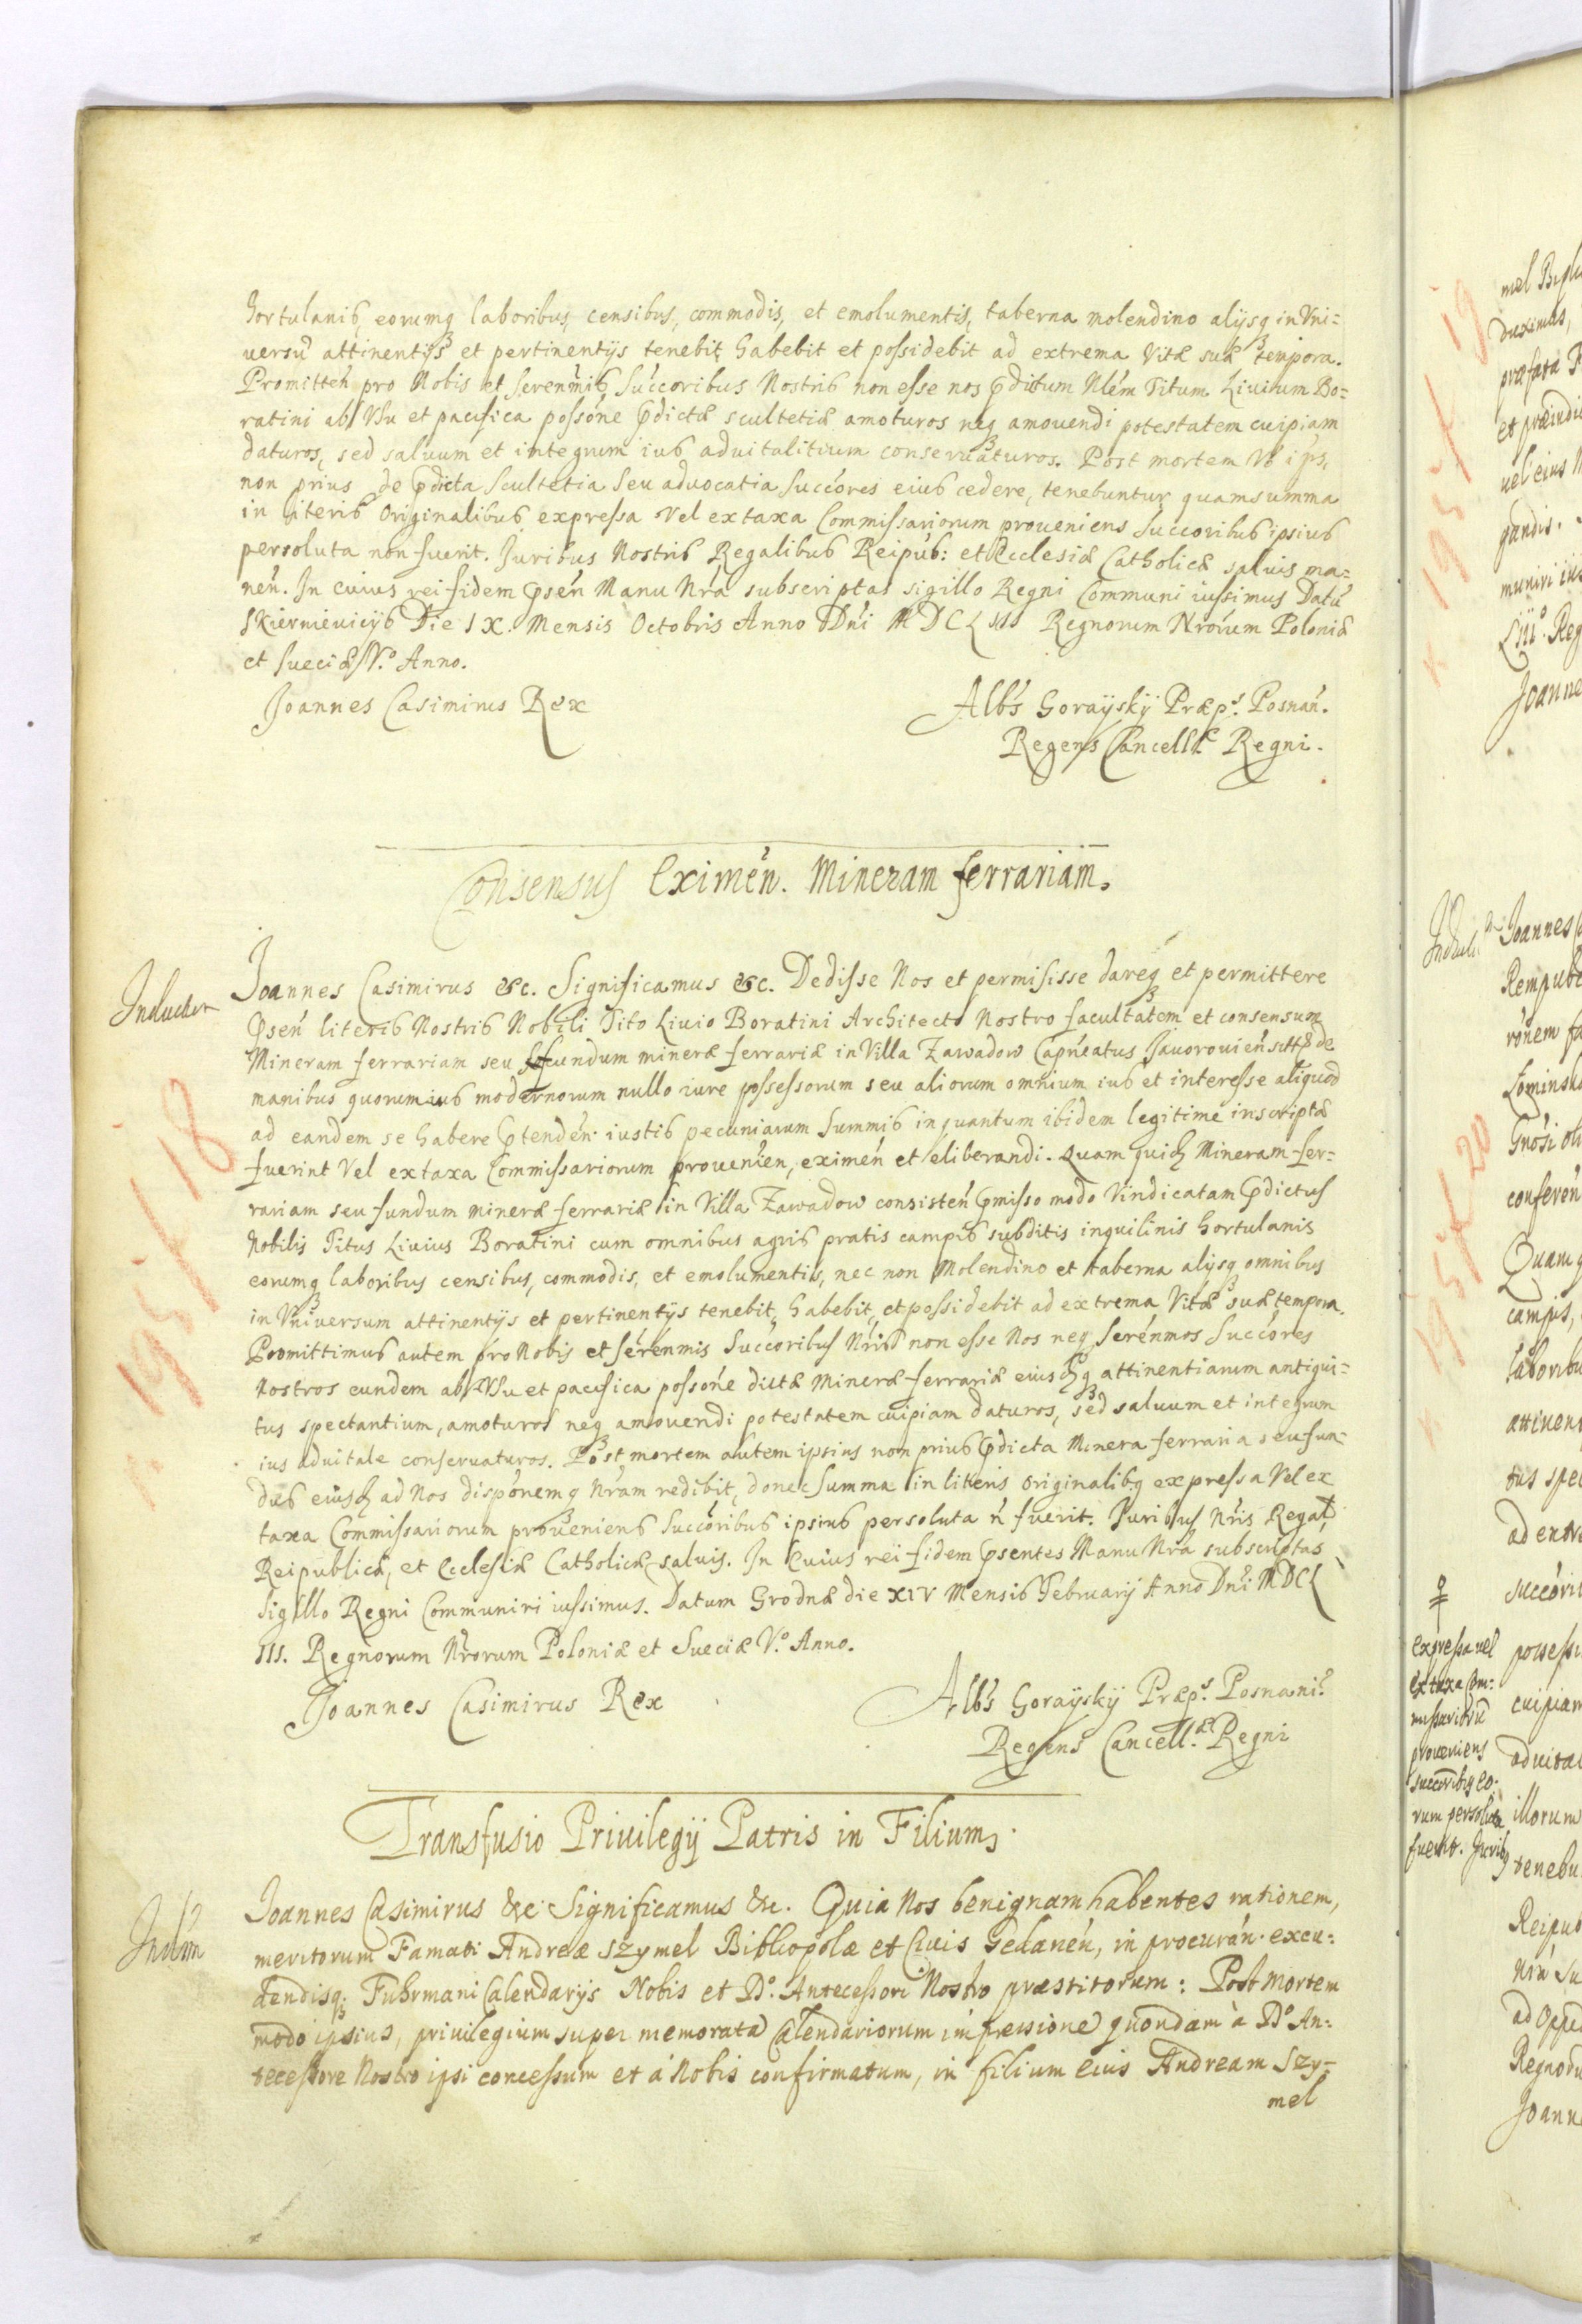 hortulanis, eorumq laboribus, censibus, commodis, et emolumentis, taberna molendino alijsq in Vni=
versũ attinentijs et pertinentijs tenebit habebit et possidebit ad extrema Vitæ suæ tempora.
Promitteń pro Nobis et Serenmis Succoribus Nostris non esse nos pditum Nlem Titum Liuium Bo=
ratini ab Vsu et pacifica possone pdictæ scultetiæ amoturos neq amouendi potestatem cuipiam
daturos, sed saluum et integrum ius aduitalitium conseruaturos. Post mortem Vo ips,
non prius de pdicta Scultetia seu aduocatia succores eius cedere, tenebuntur quam summa
in literis Originalibus expressa vel ex taxa Commissariorum proueniens Succoribus ipsius
persoluta non fuerit. Juribus Nostris Regalibus Reipub: et Ecclesiæ Catholicæ saluis ma=
neń. In cuius rei fidem pseń Manu Nra subscriptas sigillo Regni Communi iussimus Datũ
Skierneuicijs Die IX. Mensis Octobris Anno Dni MDCLIII Regnorum Nrorum Poloniæ
et Sueciæ V.o Anno.
Joannes Casimirus Rex
Albs Gorayskÿ Præps. Posnań.
Regens Cancellæ Regni.
Consensus Eximeń. Mineram ferrariam.
Inductum
Joannes Casimirus &c. Significamus &c. Dedisse Nos et permisisse dareq et permittere
pseń literis Nostris Nobili Tito Liuio Boratini Architecto Nostro facultatem et consensum
Mineram ferrariam seu fundum mineræ ferrariæ in Villa Zawadow Capneatus Jauorouień sitæ de
manibus quorumuis modernorum nullo iure possessorum seu aliorum omnium ius et interesse aliquod
ad eandem se habere ptendeń iustis pecuniarum Summis inquantum ibidem legitime inscriptæ
fuerint Vel ex taxa Commissariorum prouenien, eximeń et eliberandi. Quam quidem Mineram fer=
rariam seu fundum mineræ ferrariæ in Villa Zawadow consisteń pmisso modo Vindicatam pdictus
Nobilis Titus Liuius Boratini cum omnibus agris pratis campis subditis inquilinis hortulanis
eorumq laboribus censibus, commodis, et emolumentis, nec non Molendino et taberna alijsq omnibus
in Vniversum attinentijs et pertinentijs tenebit, habebit, et possidebit ad extrema Vitæ suæ tempora.
Promittimus autem pro Nobis et serenmis Succoribus Nris non esse Nos neq serenmos Succores
Nostros eundem ab Vsu et pacifica possone dictæ Mineræ ferrariæ eiusdq attinentiarum antiqui=
tus spectantium, amoturos neq amouendi potestatem cuipiam daturos, sed saluum et integrum
ius aduitale conseruaturos. Post mortem autem ipsius non prius pdicta Minera ferraria seu fun=
dus eiusd ad Nos disponemq Nram redibit, donec Summa in literis originalibq expressa Vel ex
taxa Commissariorum proueniens Succoribus ipsius persoluta ń fuerit. Juribus Nris Regal,
Reipublicæ, et Ecclesiæ Catholicæ saluis. In Cuius rei fidem psentes Manu Nra subscriptas
Sigillo Regni Communiri iussimus. Datum Grodnæ die XIV Mensis Februarij Anno Dni MDCL
III. Regnorum Nrorum Poloniæ et Sueciæ V.o Anno.
Joannes Casimirus Rex
Albs Gorayskÿ Præps. Posnani.
Regens Cancell.æ Regni
Transfusio Priuilegij Patris in Filium.
Indum
Joannes Casimirus &c Significamus &c. Quia Nos benignam habentes rationem,
meritorum Famati Andreæ Szymel Bibliopolæ et Ciuis Gedaneń, in procurań excu:
dendisq; Fuhrmani Calendarijs Nobis et Do. Antecessori Nostro præstitorum: Post mortem
modo ipsius, priuilegium super memorata Calendariorum impressione quondam à Do An:
tecessore Nostro ipsi concessum et á Nobis confirmatum, in filium eius Andream Szy=
mel
expressa vel
ex taxa Com:
missariorũ
proueniens
succoribq eo:
rum persoluta
fuerit. Juribq